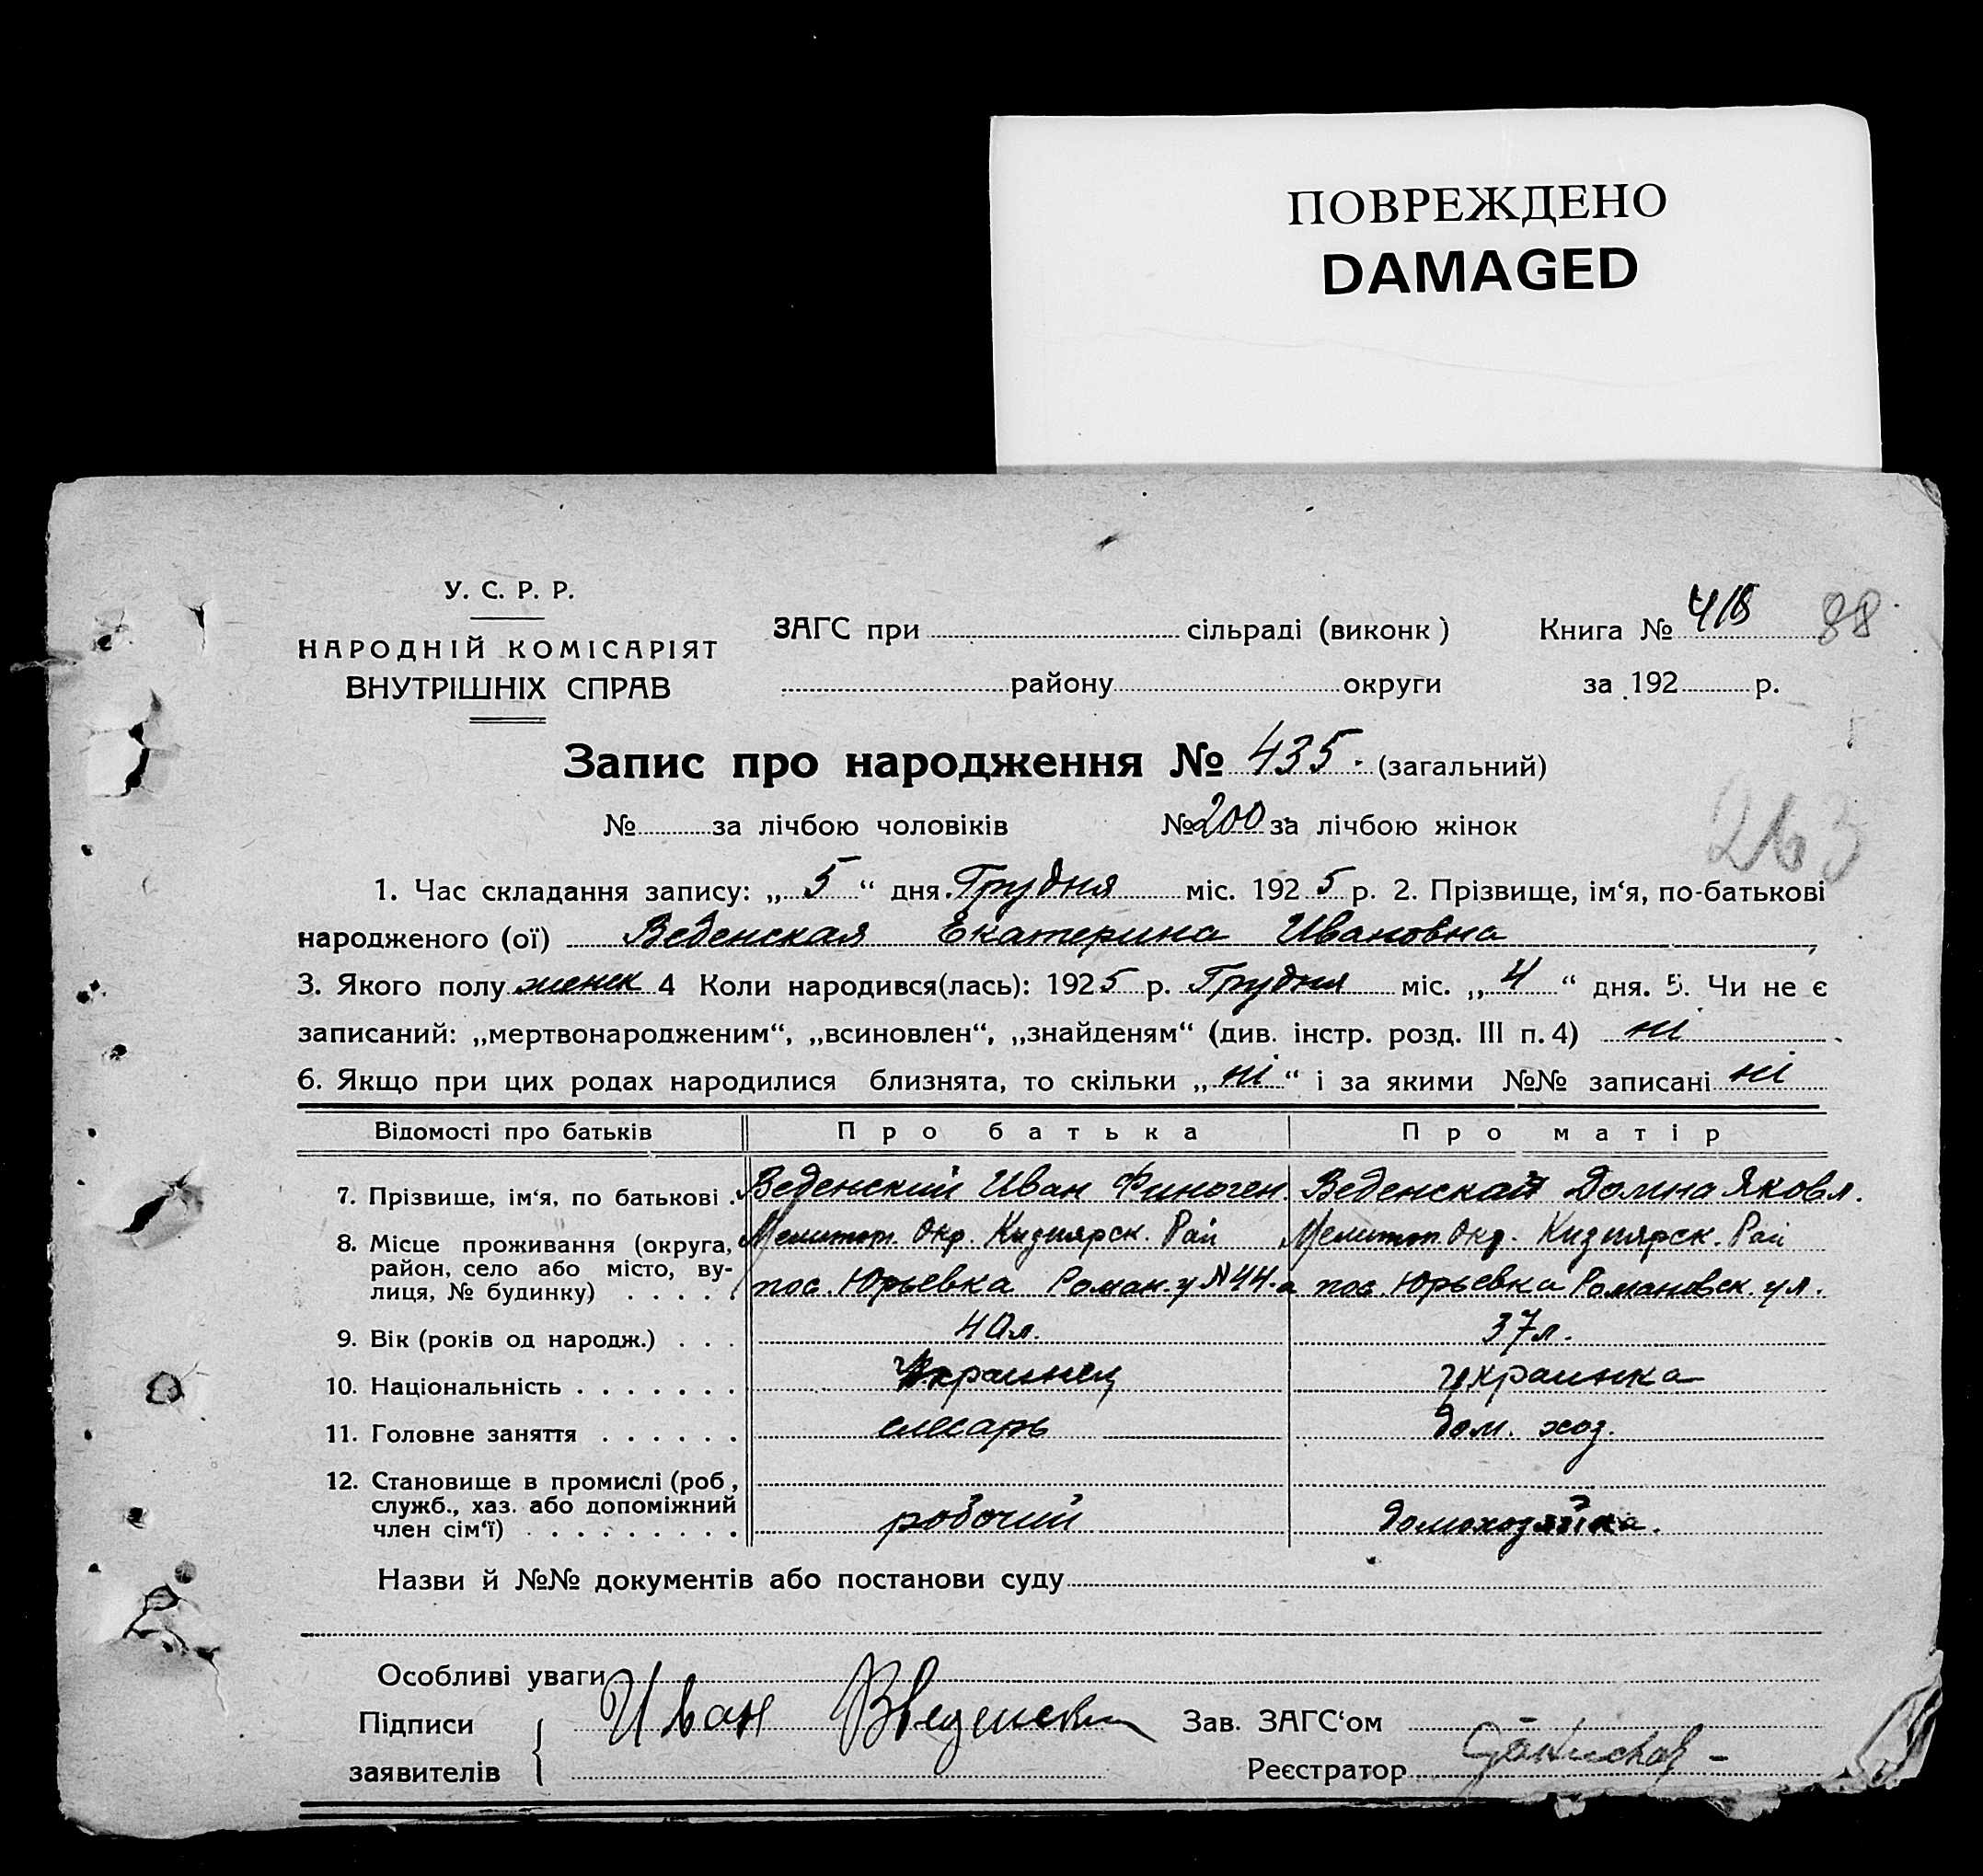 ПОВРЕЖДЕНО
DAMAGED
У. С. Р. Р.
НАРОДНІЙ КОМІСАРІЯТ
ВНУТРІШНІХ СПРАВ
ЗАГС при сільраді (виконк) Книга № 88
району округи за 192 р.
Запис про народження № 435. (загальний)
№ за лічбою чоловіків № 200 за лічбою жінок
263
1. Час складання запису: „ 5 “ дня Грудня міс. 1925 р. 2. Прізвище, ім‘я, по-батькові
народженого (ої) Веденская Екатерина Ивановна
3. Якого полу женск 4 Коли народився(лась): 1925 р. Грудня міс. „ 4 “ дня. 5. Чи не є
записаний: „мертвонародженим“, „всиновлен“, „знайденям“ (див. інстр. розд. III п. 4) ні
6. Якщо при цих родах народилися близнята, то скільки „ ні “ і за якими №№ записані ні
Відомості про батьків Про батька Про матір
7. Прізвище, ім‘я, по батькові . Веденский Иван Финоген. Веденская Домна Яковл.
8. Місце проживання (округа, Мелитоп. Окр. Кизиярск. Рай Мелитоп. Окр. Кизиярск. Рай
район, село або місто, ву-
лиця, № будинку) . . . . пос. Юрьевка Роман. у N 44. а пос. Юрьевка Романовск. ул.
9. Вік (років од народж.) . . . 40 л. 37 л.
10. Національність . . . . . . . Украинец Украинка
11. Головне заняття . . . . . . слесарь дом. хоз.
12. Становище в промислі (роб ,
служб., хаз. або допоміжний
член сім‘ї) . . . . . . . . . робочий домохозяйка.
Назви й №№ документів або постанови суду
Особливі уваги
Підписи Иван Зав. ЗАГС‘ом
заявителів Реєстратор